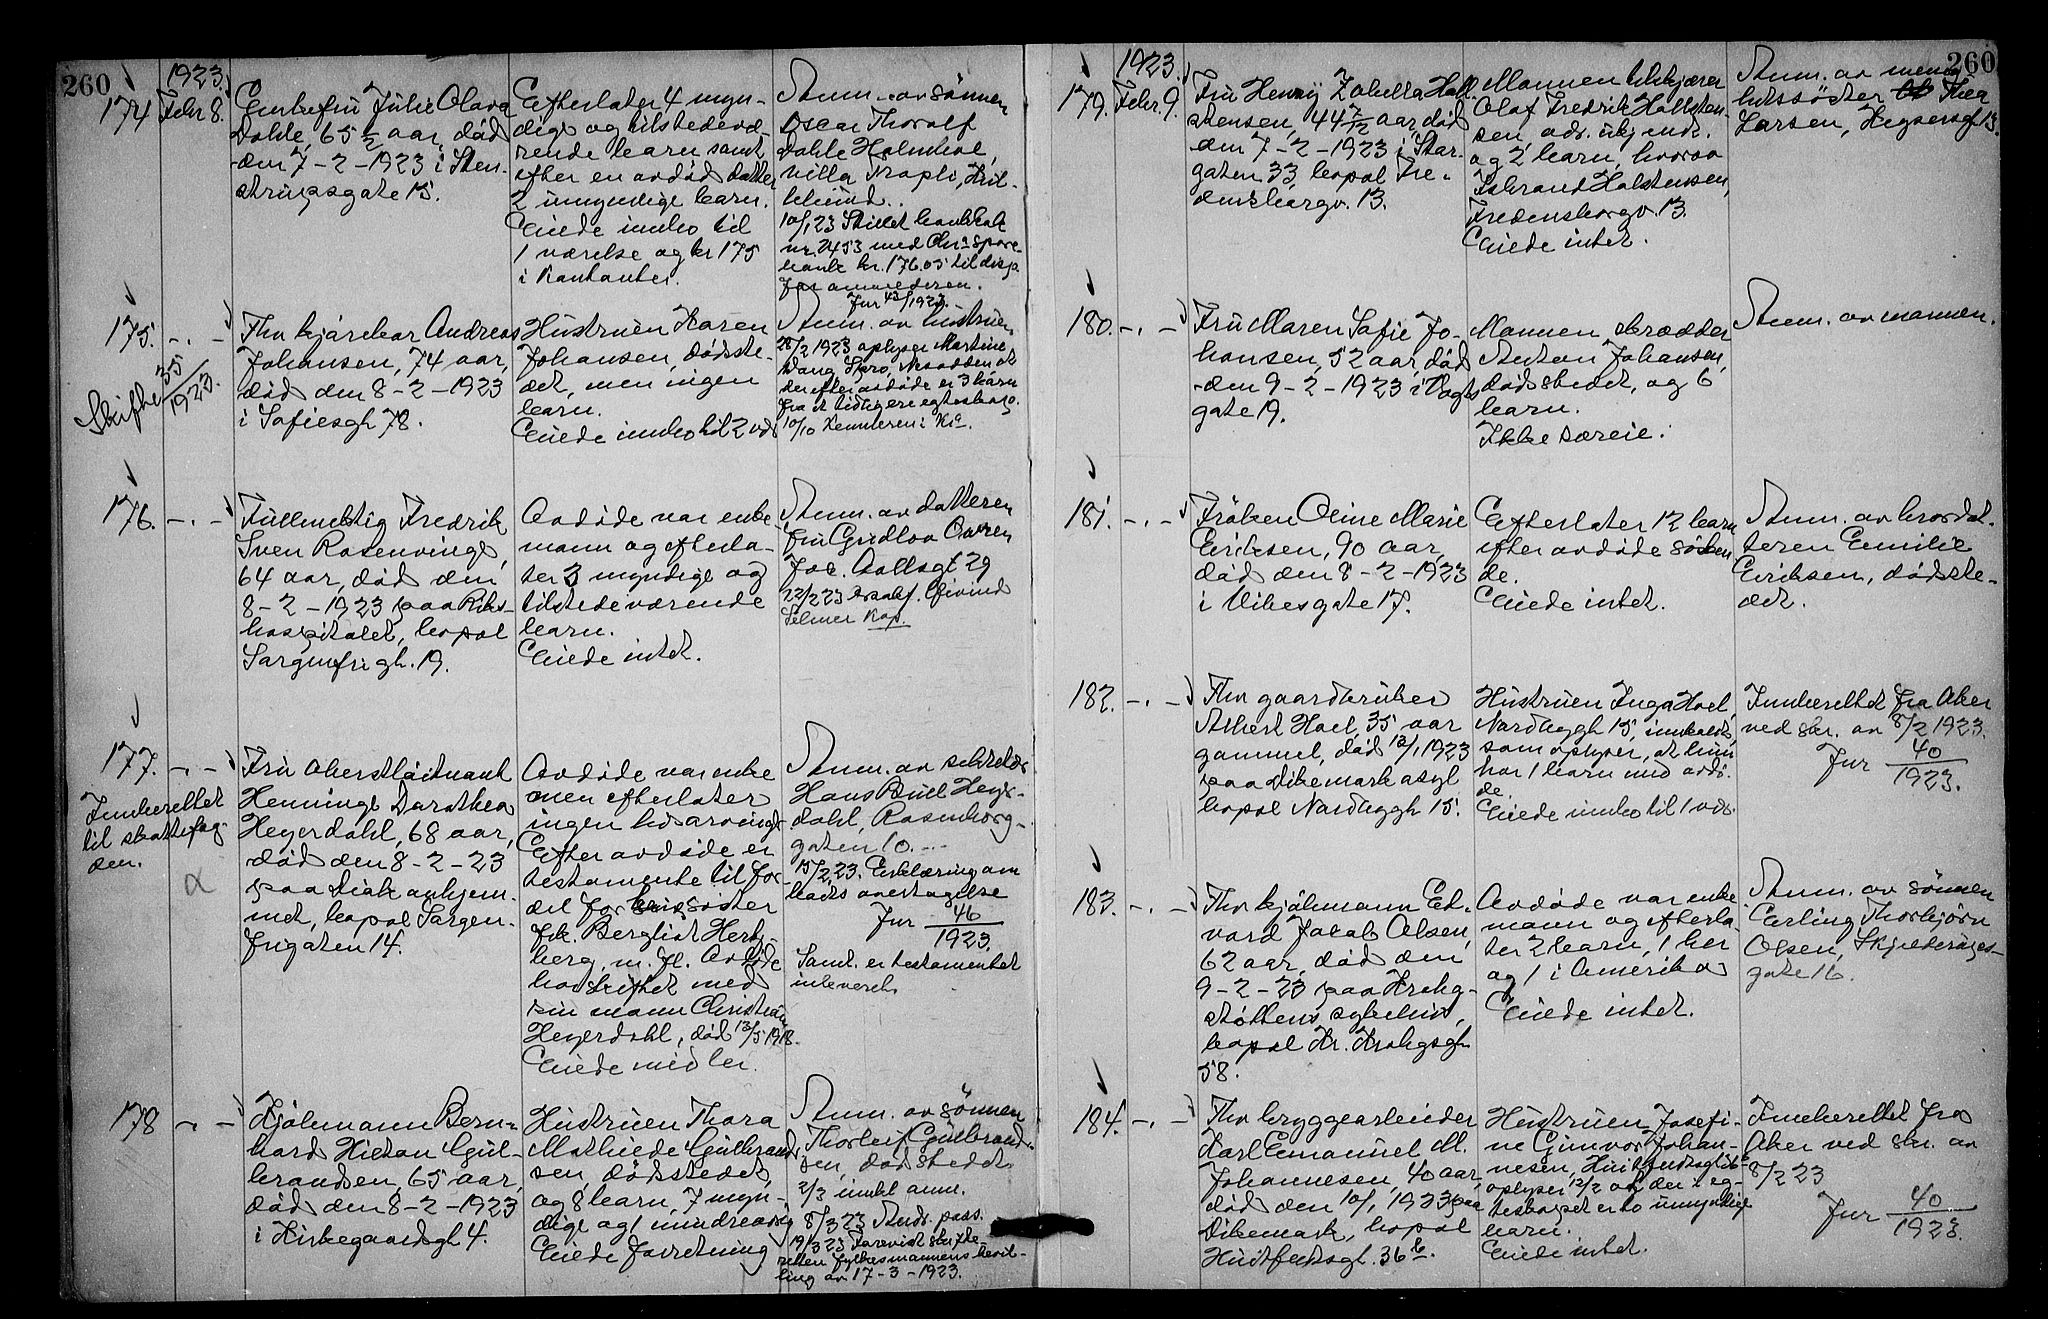 260
1923.
174 Febr 8.
Enkefru Julie Olava
Dahle, 65 1/2 aar, død
den 7-2-1923 i Sten-
strupsgate 15.
Efterlater 4 myn-
dige og tilstedevæ-
rende barn samt
efter en avdød datter
2 umyndige barn.
Eiede innbo til
1 værelse og kr 175
i kontanter.
Anm. av sønnen
Oscar Thoralf
Dahle Holmboe,
villa Trapli,
10/1 23 Stillet bankbok
nr. 7453 med Chr.a spare-
bank kr. 176.05 til disp.
for anmelderen.
Jur 43/1923.
175. -.-
Skifte 35/1923.
Fhv kjørekar Andreas
Johansen, 74 aar,
død den 8-2-1923
i Sofiesgt. 78.
Hustruen Karen
Johansen, dødste-
det, men ingen
barn.
Eiede innbo til 2 vær
Anm. av hustruen
28/2 1923 oplyser Martine
Dang Skro, Nesodden at
der efter avdøde er 3 barn
fra et tidligere egteskap.
10/10 Kemneren i Kr.a.
176. -.-
Fullmektig Fredrik
Sven Rosenvinge,
64 aar, død den
8-2-1923 paa Riks-
hospitalet, bopæl
Sorgenfrigt. 19.
Avdøde var enke-
mann og efterla-
ter 3 myndige og
tilstedeværende
barn.
Eiede intet.
Anm. av datteren
fru Gudlov Owren
Joc. Aallsgt 29
22/2 23 Eivind
Selmer Kap.
177. -.-
Innberettet
til skattefog-
den.
Fru oberstløitnant
Henninge Dorothea
Heyerdahl, 68 aar,
død den 8-2-23
paa Diakonhjem-
met, bopæl Sorgen-
frigaten 14.
Avdøde var enke
men efterlater
ingen livsarvinger
Efter avdøde er
testamente til for-
del for søster
frk. Bergliot Hertz-
berg m. fl. Avdøde
har skiftet med
sin mann Christian
Heyerdahl, død 13/5 1918.
Eiede midler.
Anm. av sekretær
Hans Buell Heyer-
dahl, Rosenborg-
gaten 10.
15/2 23. Erklæring om
boets overtagelse
Jur 46/1923.
Saml. er testamentet
inleveret.
178 -.-
Kjølemann Bern-
hard Hieton Gul-
brandsen, 65 aar,
død den 8-2-1923
i Kirkegaardsgt 4.
Hustruen Thora
Mathilde Gulbrand-
sen, dødstedet,
og 8 barn, 7 myn-
dige og 1 mindreaarig
Eiede forretning
Anm. av sønnen
Thorleif Gulbrand-
sen, dødstedet.
2/3 innkl anm.
8/3 23 Andr. pass.
19/3 23 Forevist skifte-
retten fylkesmannens bevil-
ling av 17-3-1923.
260
1923.
179. Febr. 9.
Fru Henny Zabella Hall-
stensen, 44 7/12 aar, død
den 7-2-1923 i Stor-
gaten 33, bopæl Fre-
densborgv. 13.
Mannen tilskjærer
Olaf Fredrik Hallsten-
sen, adr. ukjendt.
og 2 barn, hvorav
Isbrand Halstensen,
Fredensborgv. 13.
Eiede intet.
Anm. av menig-
hetssøster Thea
Larsen, Hegersgt 13.
180. -.-
Fru Maren Sofie Jo-
hansen, 52 aar, død
den 9-2-1923 i Vogts
gate 19.
Mannen skrædder
Anton Johansen,
dødsstedet, og 6
barn.
Ikke særeie.
Anm. av mannen.
181. -.-
Frøken Oline Marie
Eriksen, 90 aar,
død den 8-2-1923
i Vibesgate 17.
Efterlater 12 barn
efter avdøde søsken
de.
Eiede intet.
Anm. av brordat-
teren Emilie
Eriksen, dødste-
det.
182. -.-
Fhv gaardbruker
Albert Hoel, 35 aar
gammel, død 13/1 1923
paa Dikemark asyl
bopæl Nordbyggt 15.
Hustruen Inga Hoel,
Nordbyggt 15, innkaldt
som oplyser, at hun
har 1 barn med avdø-
de.
Eiede innbo til 1 vær.
Innberettet fra Aker
ved skr. av 8/2 1923.
Jur 40/1923.
183. -.-
Fhv kjølemann Ed-
vard Jacob Olsen,
62 aar, død den
9-2-23 paa Krohg-
støttens sykehus,
bopæl Kr. Krohgsgt
58.
Avdøde var enke
mann og efterla-
ter 2 barn, 1 her
og 1 i Amerika
Eiede intet.
Anm. av sønnen
Erling Thorbjørn
Olsen, Skjelderups-
gate 16.
184. -.-
Fhv bryggearbeider
Karl Emanuel M.
Johannesen, 40 aar,
død den 10/1 1923 paa
Dikemark, bopæl
Huitfeldtsgt. 36 b.
Hustruen Josefi-
ne Gunvor Johan-
nesen, Huitfeldtsgt 36 b
oplyser 12/2 at der i eg-
teskapet er to umyndige
barn.
Eiede intet.
Innberettet fra
Aker ved skr. av
8/2 23
Jur 40/1923.